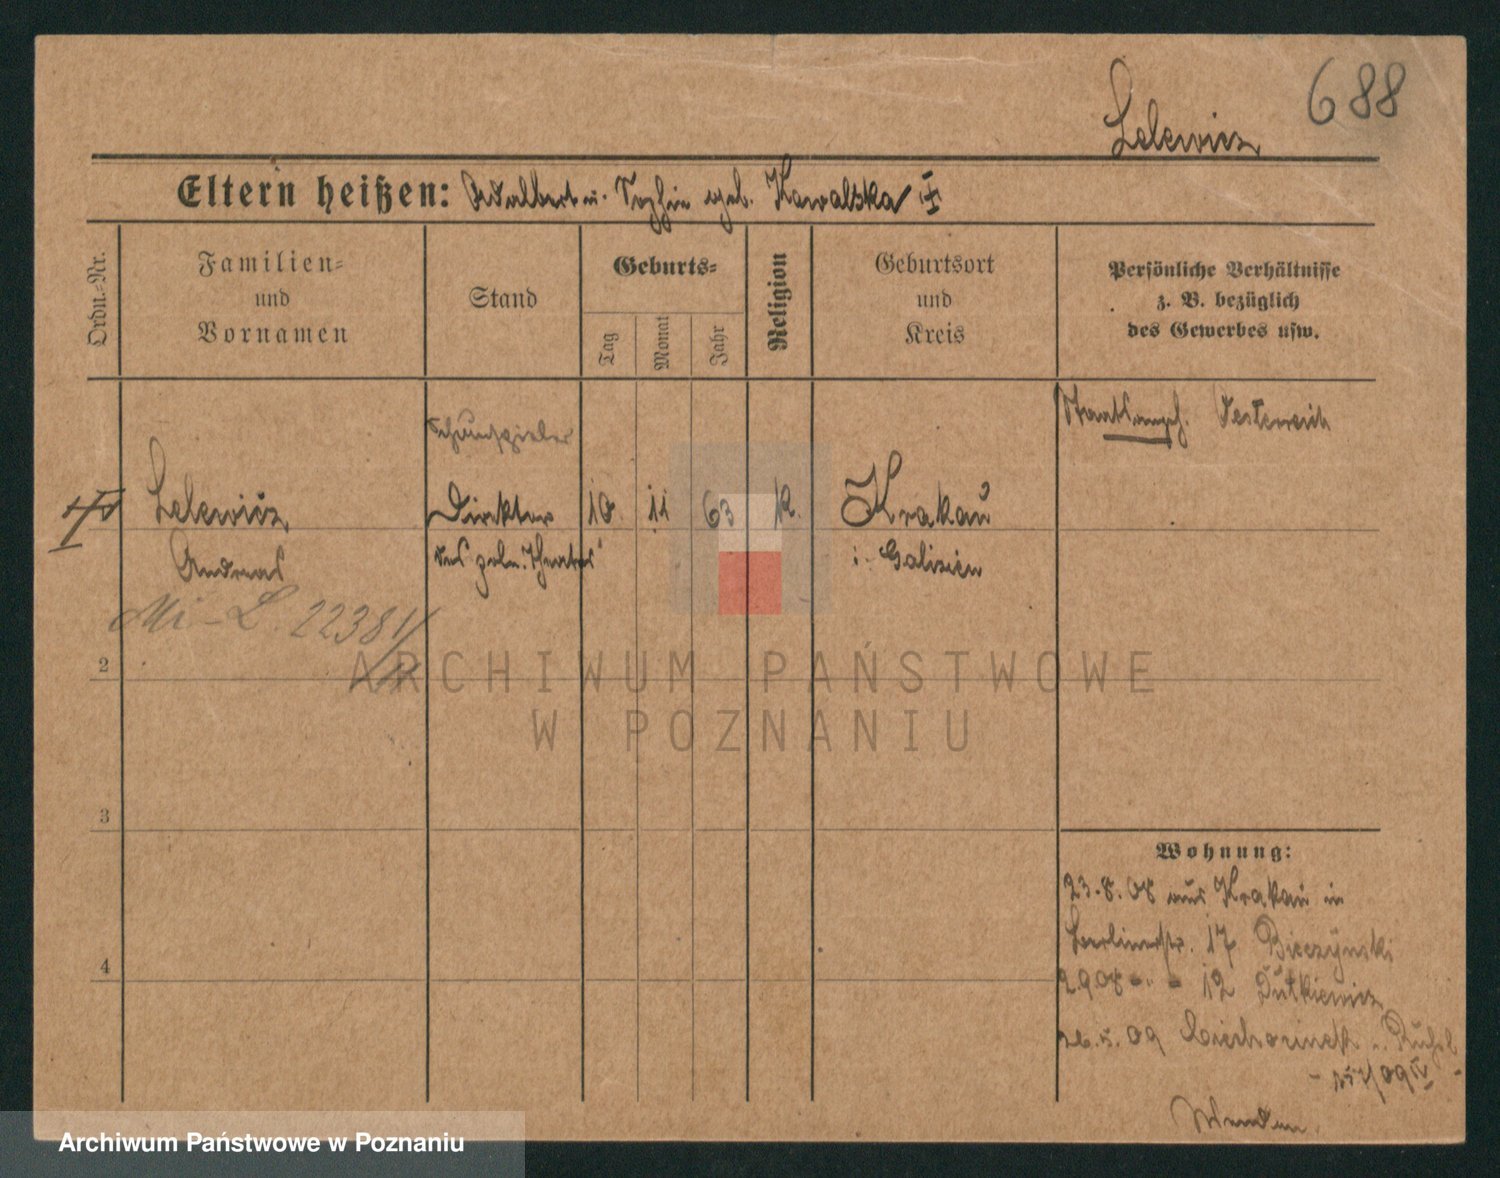 688
Lelewicz
Eltern heißen: Adalbert u. Sophie geb. Kowalska
Ordn.-Nr.
Familien- und Vornamen
Stand
Geburts-
Tag
Monat
Jahr
Religion
Geburtsort und Kreis
Persönliche Verhältnisse
z. B. bezüglich
des Gewerbes usw.
Staatsangeh. Oesterreich
Schauspieler
Lelewicz Direktor 10 11 63 k. Krakau
Andreas des poln. Theaters i. Galizien
Mi-L. 22381/
2
3
4
Wohnung:
23.8.08 aus Krakau in
Berlinerstr. 17 Bieczynski
29 08 - " - 12 Dutkiewicz
26.5.09 Ciechocinek
ARCHIWUM PAŃSTWOWE
W POZNANIU
Archiwum Państwowe w Poznaniu